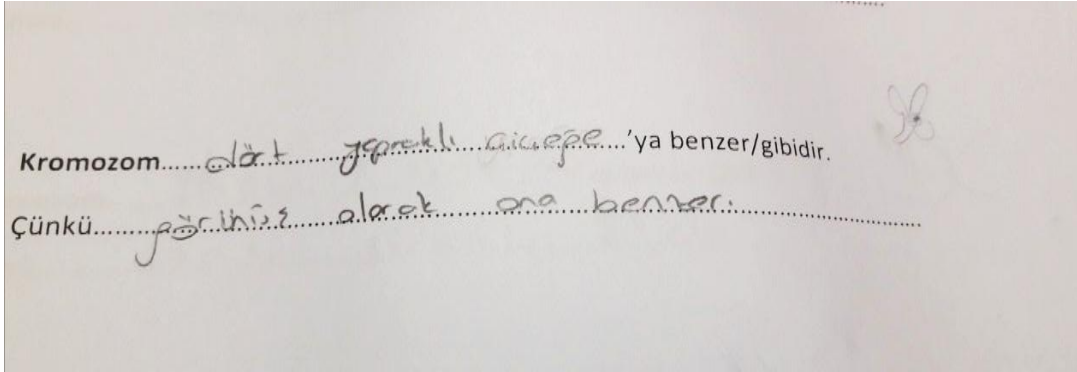 Kromozom......dört......yapraklı....çiçeğe....'ya benzer/gibidir.
Çünkü.......görünüş.....olarak.......ona.....benzer.......................